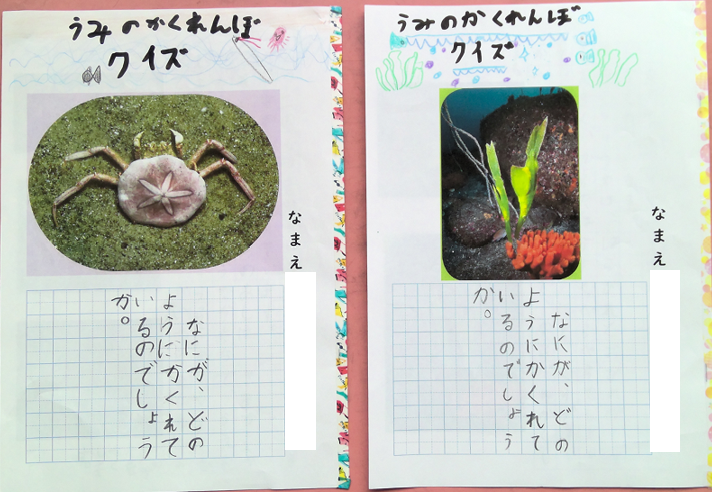 うみのかくれんぼ
クイズ
なまえ
なにが、どの
ようにかくれて
いるのでしょう
か。
うみのかくれんぼ
クイズ
なまえ
なにが、どの
ようにかくれて
いるのでしょう
か。